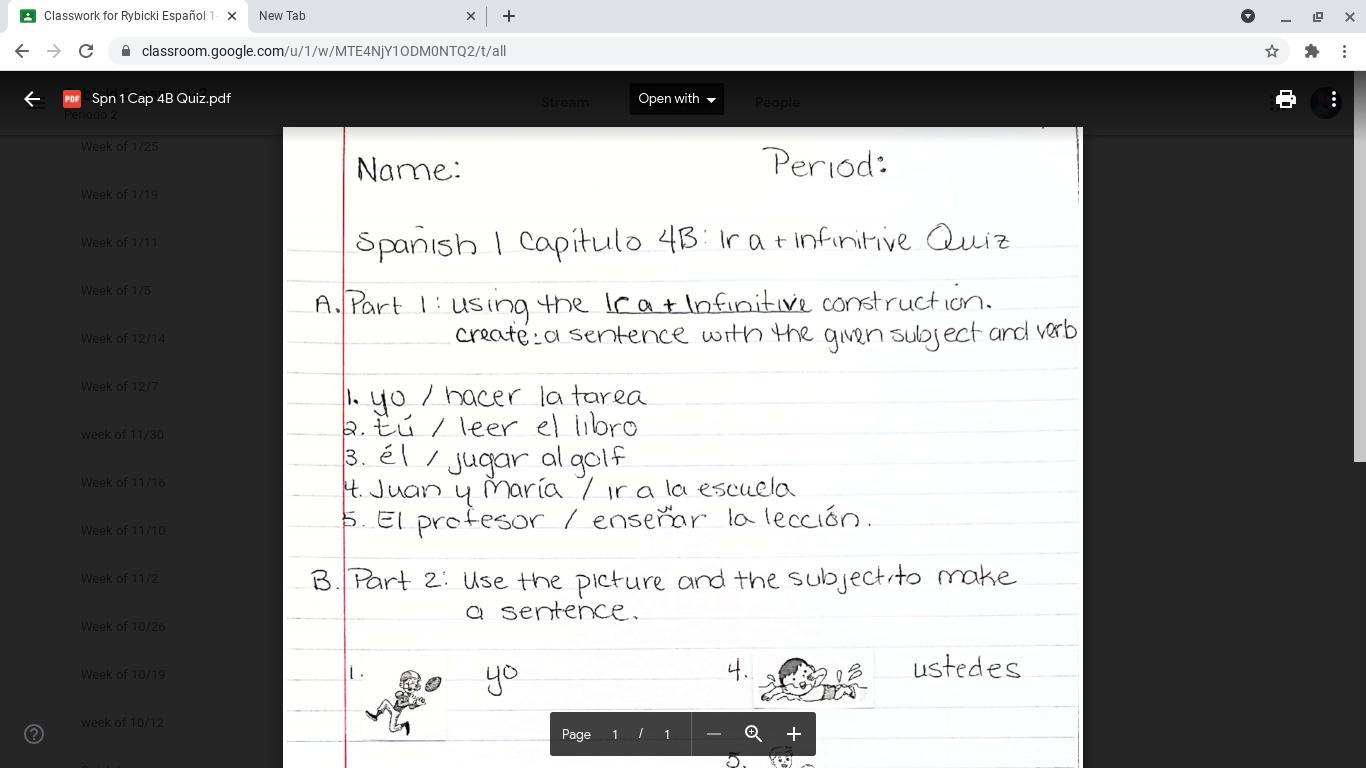 Classwork for Rybicki Español 1-
New Tab
classroom.google.com/u/1/w/MTE4NjY1ODM0NTQ2/t/all
PDF Spn 1 Cap 4B Quiz.pdf
Open with
Stream
People
Periodo 2
Week of 1/25
Week of 1/19
Week of 1/11
Week of 1/5
Week of 12/14
Week of 12/7
week of 11/30
Week of 11/16
Week of 11/10
Week of 11/2
Week of 10/26
Week of 10/19
week of 10/12
Name:
Period:
Spañish 1 Capítulo 4B: Ir a + Infinitive Quiz
A. Part 1: using the Ir a + Infinitive construction.
create: a sentence with the given subject and verb
1. yo / hacer la tarea
2. tú / leer el libro
3. él / jugar al golf
4. Juan y María / ir a la escuela
5. El profesor / enseñar la lección.
B. Part 2: Use the picture and the subject, to make
a sentence.
1. yo
4. ustedes
5.
Page 1 / 1